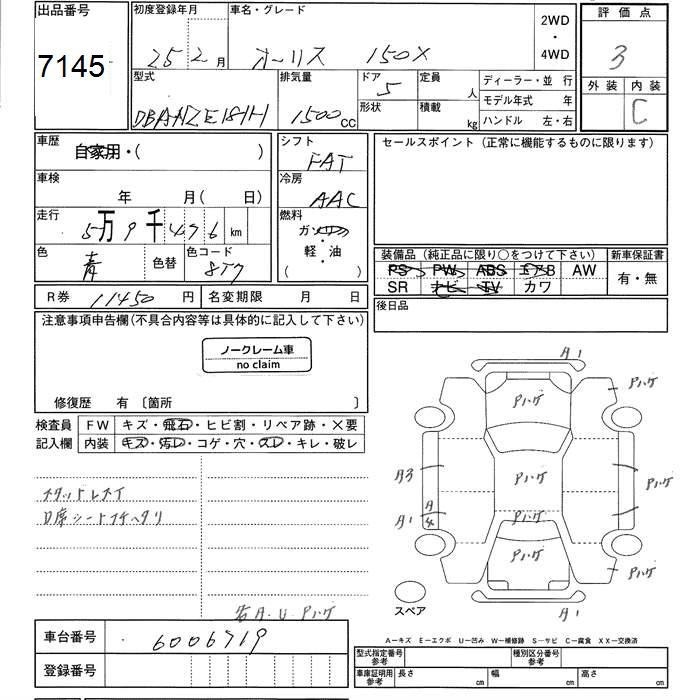 出品番号
7145
初度登録年月
25 2月
車名・グレード
オーリス 150X
2WD
・
4WD
評価点
3
外装 内装
C
型式
DBANZE181H
排気量
1500cc
ドア
5
形状
定員
人
積載
kg
ディーラー・並 行
モデル年式 年
ハンドル 左・右
車歴
自家用・( )
車検
年 月( 日)
走行
5万9千496km
色
青
色替
色コード
8T7
シフト
FAT
冷房
AAC
燃料
・
軽・油
( )
セールスポイント (正常に機能するものに限ります)
装備品 (純正品に限り○をつけて下さい)
PS PW ABS エアB AW
SR ナビ TV カワ
新車保証書
有・無
R券 11450円
名変期限 月 日
後日品
注意事項申告欄(不具合内容等は具体的に記入して下さい)
ノークレーム車
no claim
修復歴 有 〔箇所 〕
検査員
記入欄
FW キズ・飛石・ヒビ割・リペア跡・X要
内装 キズ・汚レ・コゲ・穴・スレ・キレ・破レ
スタッドレスタイ
D席シート
右A.U Pハゲ
A1
Pハゲ
Pハゲ
A3
Pハゲ
Pハゲ
A
4
A1
Pハゲ
Pハゲ
Pハゲ
A1
スペア
車台番号
6006719
登録番号
A－キズ E－エクボ U－凹み W－補修跡 S－サビ C－腐食 XX－交換済
型式指定番号
参考
種別区分番号
参考
車庫証明用
参考
長さ cm
幅 cm
高さ cm